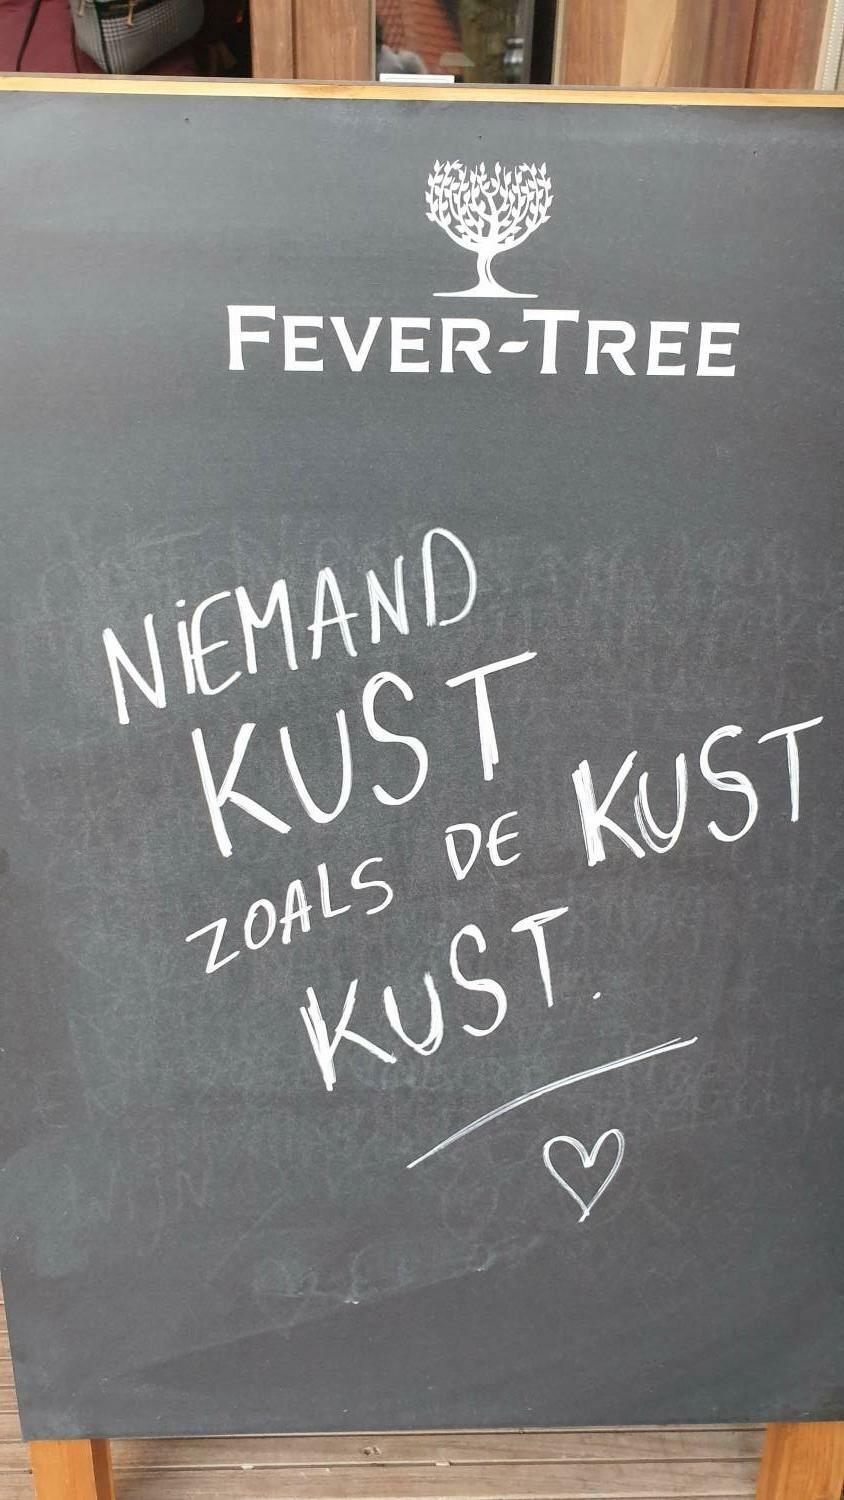 FEVER-TREE
NiEMAND
KUST
ZOALS DE KUST
KUST.
WIJN